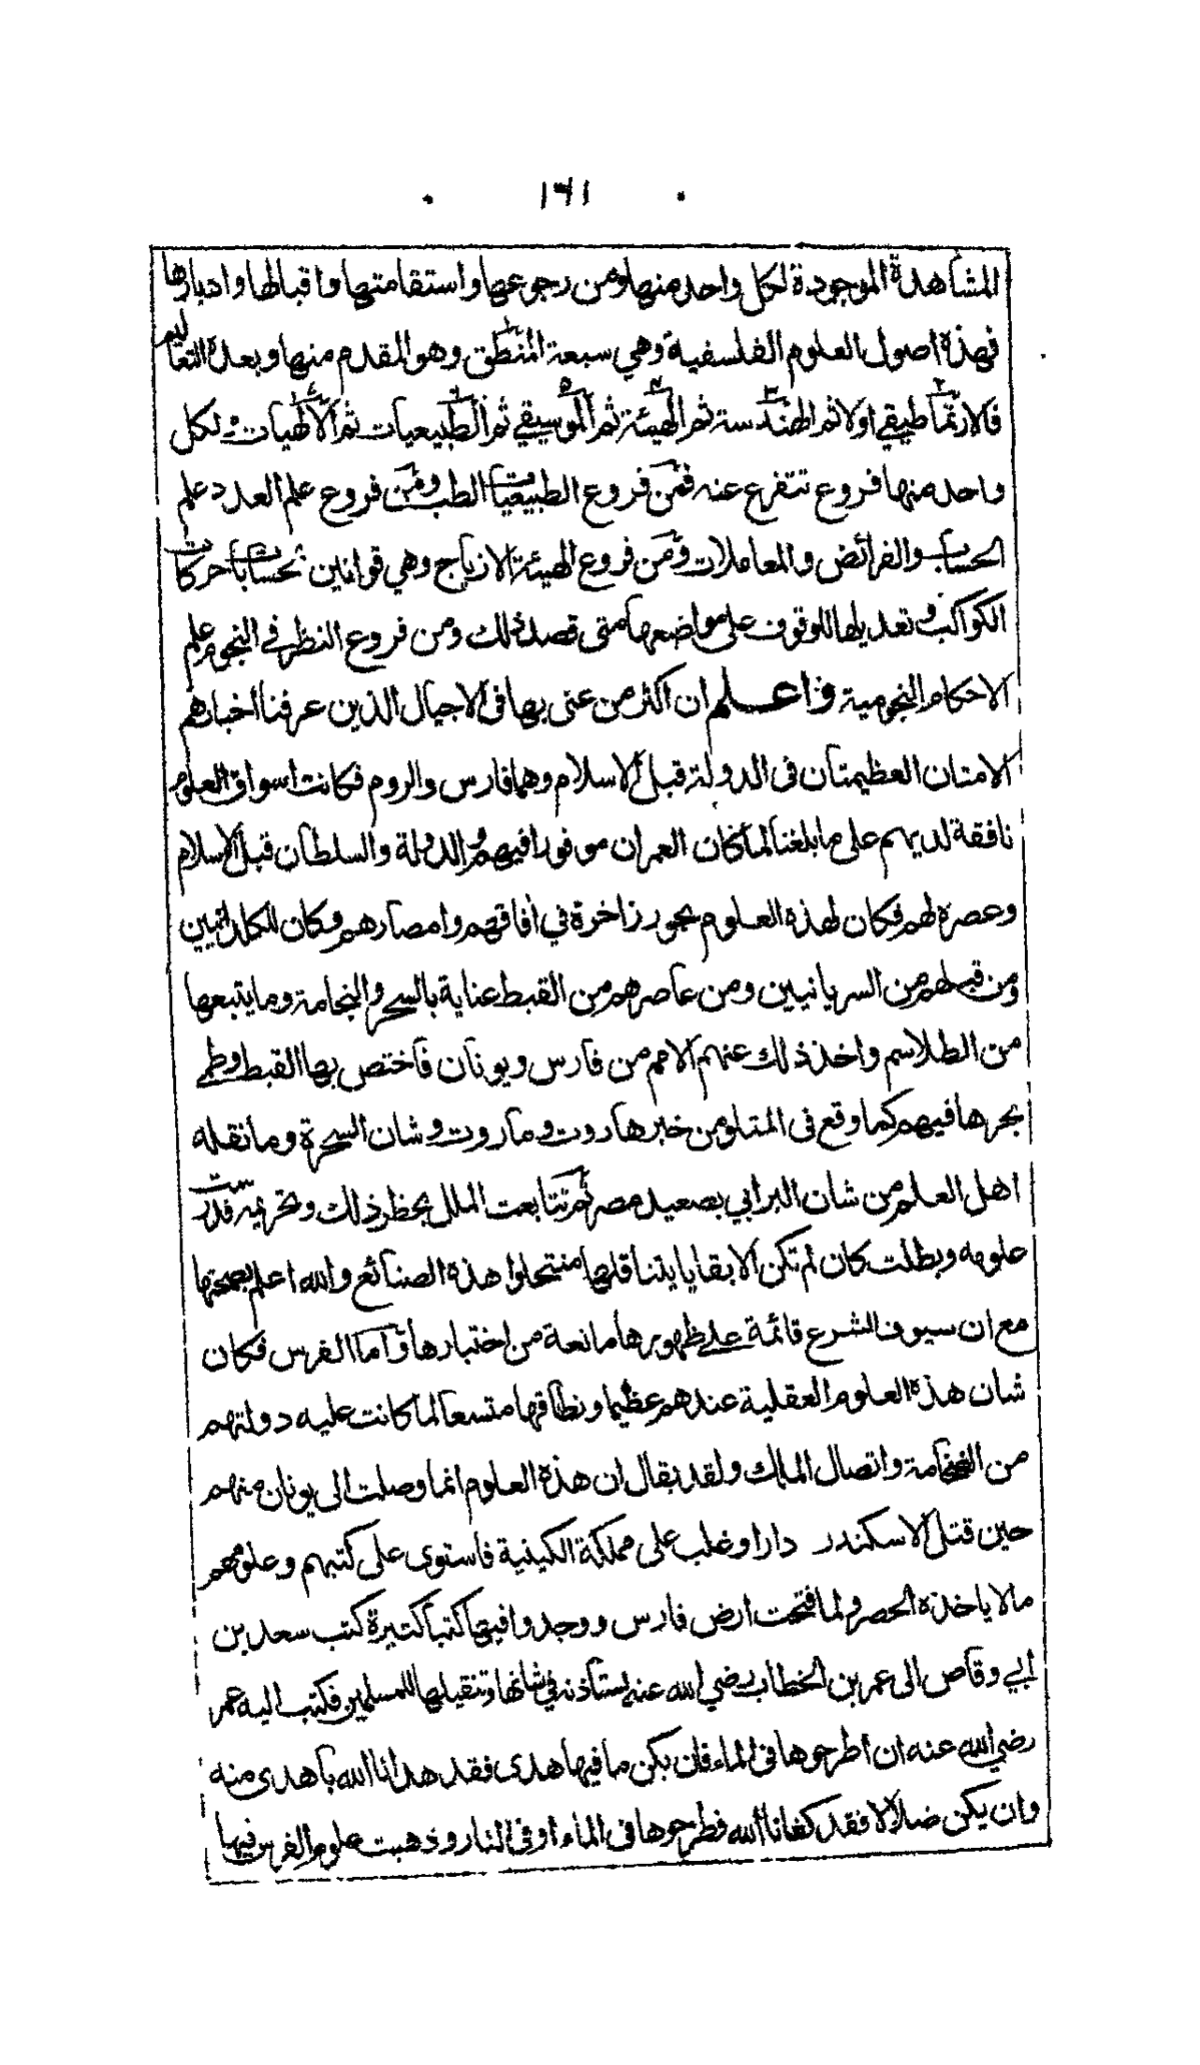 ١٦١
المشاهدة الموجودة لكل واحد منها ومن رجوعها واستقامتها واقبالها وادبارها
فهذه اصول العلوم الفلسفية وهي سبعة المنطق وهو المقدم منها وبعده التعاليم
فالارتماطيقي اولا ثم الهندسة ثم الهيئة ثم الموسيقي ثم الطبيعيات ثم الالهيات ولكل
واحد منها فروع تتفرع عنه فمن فروع الطبيعيات الطب ومن فروع علم العدد علم
الحساب والفرائض والمعاملات ومن فروع الهيئة الازياج وهي قوانين لحسابات حركات
الكواكب وتعديلها للوقوف على مواضعها متى قصد ذلك ومن فروع النظر في النجوم علم
الاحكام النجومية واعلم ان اكثر من عنى بها في الاجيال الذين عرفنا اخبارهم
الامتان العظيمتان في الدولة قبل الاسلام وهما فارس والروم فكانت اسواق العلوم
نافقة لديهم على ما بلغنا لما كان العمران موفورا فيهم والدولة والسلطان قبل الاسلام
وعصره لهم فكان لهذه العلوم بحور زاخرة في افاقهم وامصارهم وكان للكلدانيين
ومن قبلهم من السريانيين ومن عاصرهم من القبط عناية بالسحر والنجامة وما يتبعها
من الطلاسم واخذ ذلك عنهم الامم من فارس ويونان فاختص بها القبط وطمى
بحرها فيهم كما وقع في المتلو من خبر هاروت وماروت وشان السحرة وما نقله
اهل العلم من شان البرابي بصعيد مصر ثم تتابعت الملل بحظر ذلك وتحريمه فدرست
علومه وبطلت كان لم تكن الا بقايا يتناقلها منتحلوا هذه الصنائع والله اعلم بصحتها
مع ان سيوف الشرع قائمة على ظهورها مانعة من اختبارها واما الفرس فكان
شان هذه العلوم العقلية عندهم عظيما ونطاقها متسعا لما كانت عليه دولتهم
من الفخامة واتصال الملك ولقد يقال ان هذه العلوم انما وصلت الى يونان منهم
حين قتل الاسكندر دارا وغلب على مملكة الكينية فاستوى على كتبهم وعلومهم
مالا ياخذه الحصر ولما فتحت ارض فارس ووجدوا فيها كتبا كثيرة كتب سعد بن
ابي وقاص الى عمر بن الخطاب رضي الله عنه يستاذنه في شانها وتنقيلها للمسلمين فكتب اليه عمر
رضي الله عنه ان اطرحوها في الماء فان يكن ما فيها هدى فقد هدانا الله باهدى منه
وان يكن ضلالا فقد كفانا الله فطرحوها في الماء او في النار وذهبت علوم الفرس فيها